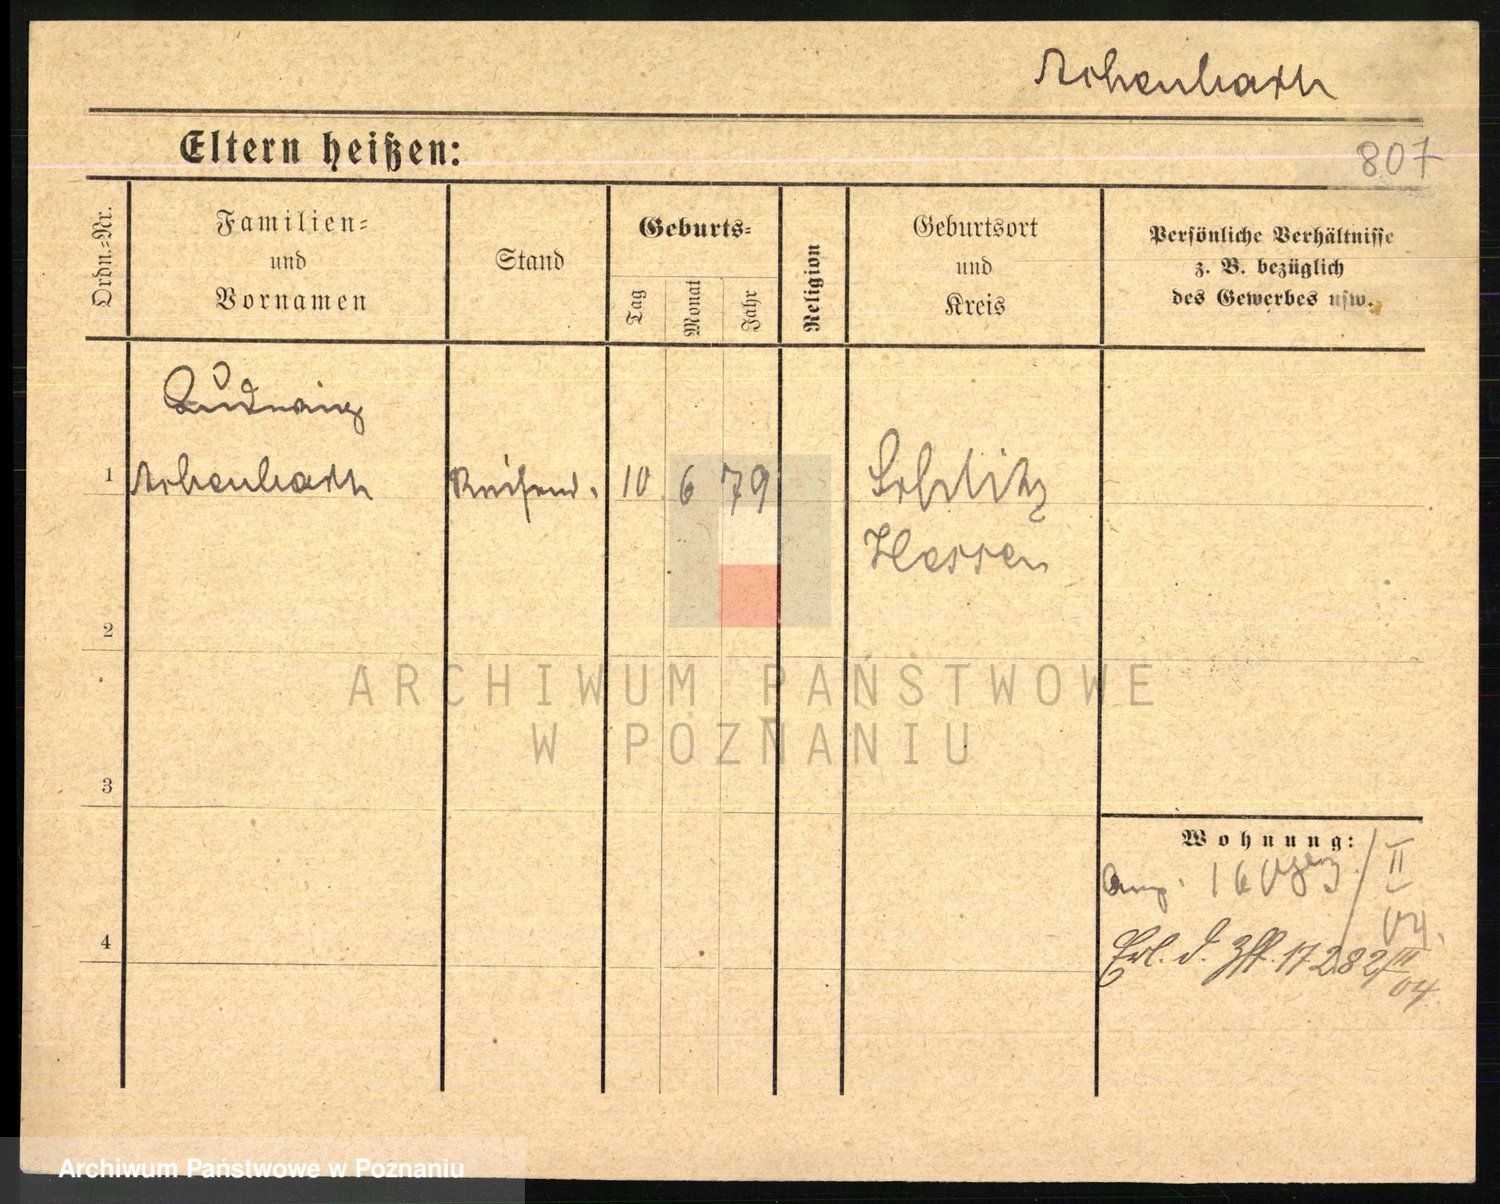 Rohenbach
Eltern heißen:
807
Ordn.=Nr.
Familien=
und
Vornamen
Stand
Geburts=
Tag
Monat
Jahr
Religion
Geburtsort
und
Kreis
Persönliche Verhältnisse
z. B. bezüglich
des Gewerbes usw.
Ludwig
1
10 6 79
Hessen
2
ARCHIWUM PAŃSTWOWE
W POZNANIU
3
Wohnung:
II
04.
4
Erl. d. 17282 III
04
Archiwum Państwowe w Poznaniu